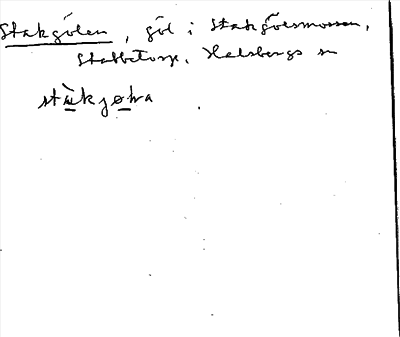 Stakgölen, göl i Stakgölsmossen,
Stabbetorp, Halsbergs sn
stàkjøɫna